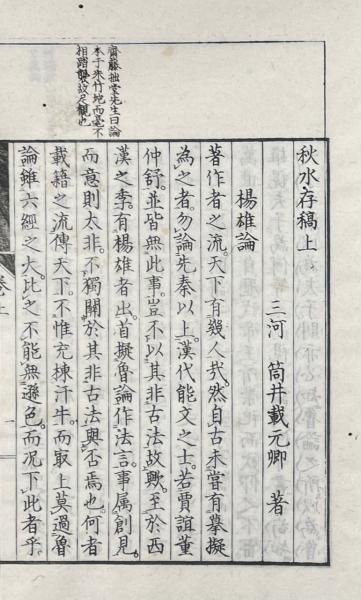 齋藤拙堂先生曰論
本于朱竹垞而毫不
相蹈襲故足観也
秋水存稿上
三河　筒井載元卿　著
楊雄論
著作者之流。天下有幾人哉。然自古未嘗有摹擬
為之者。勿論先秦以上。漢代能文之士。若賈誼董
仲舒。並皆無此事。豈不以其非古法故歟。至於西
漢之季。有楊雄者出。首擬魯論作法言。事属創見。
而意則太非。不獨關於其非古法與否焉也。何者
載籍之流傳天下。不惟充棟汗牛。而取上莫過魯
論。雖六經之大。此之不能無遜色。而况下此者乎。